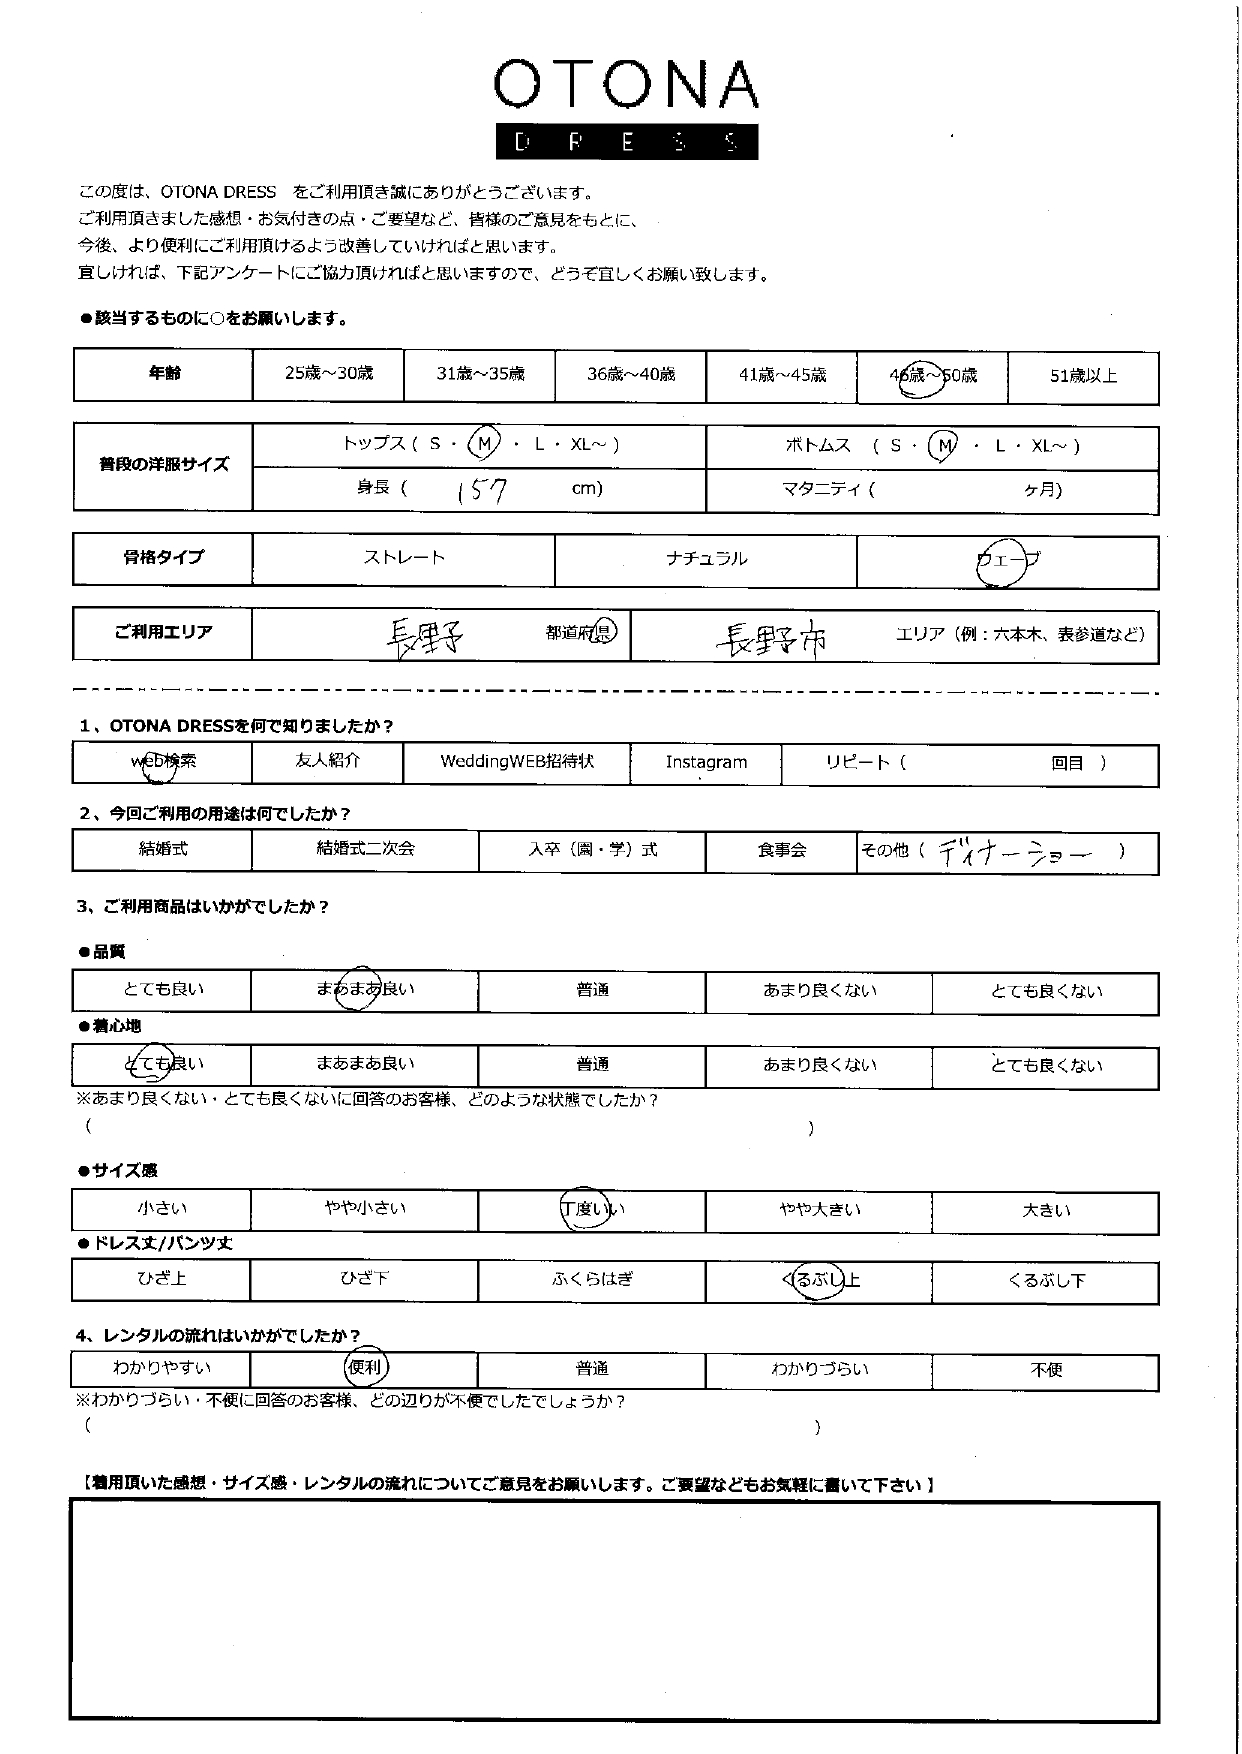 OTONA
DRESS
この度は、OTONA DRESS　をご利用頂き誠にありがとうございます。
ご利用頂きました感想・お気付きの点・ご要望など、皆様のご意見をもとに、
今後、より便利にご利用頂けるよう改善していければと思います。
宜しければ、下記アンケートにご協力頂ければと思いますので、どうぞ宜しくお願い致します。
●該当するものに○をお願いします。
年齢 25歳～30歳 31歳～35歳 36歳～40歳 41歳～45歳 46歳～50歳 51歳以上
普段の洋服サイズ
トップス ( S ・ M ・ L ・ XL～ ) ボトムス ( S ・ M ・ L ・ XL～ )
身長 ( 157 cm) マタニティ ( ヶ月)
骨格タイプ ストレート ナチュラル ウェーブ
ご利用エリア 長野 都道府県 長野市 エリア（例：六本木、表参道など）
1、OTONA DRESSを何で知りましたか？
web検索 友人紹介 WeddingWEB招待状 Instagram リピート（ 回目 ）
2、今回ご利用の用途は何でしたか？
結婚式 結婚式二次会 入卒（園・学）式 食事会 その他（ ディナーショー ）
3、ご利用商品はいかがでしたか？
●品質
とても良い まあまあ良い 普通 あまり良くない とても良くない
●着心地
とても良い まあまあ良い 普通 あまり良くない とても良くない
※あまり良くない・とても良くないに回答のお客様、どのような状態でしたか？
( )
●サイズ感
小さい やや小さい 丁度いい やや大きい 大きい
●ドレス丈/パンツ丈
ひざ上 ひざ下 ふくらはぎ くるぶし上 くるぶし下
4、レンタルの流れはいかがでしたか？
わかりやすい 便利 普通 わかりづらい 不便
※わかりづらい・不便に回答のお客様、どの辺りが不便でしたでしょうか？
( )
【着用頂いた感想・サイズ感・レンタルの流れについてご意見をお願いします。ご要望などもお気軽に書いて下さい】